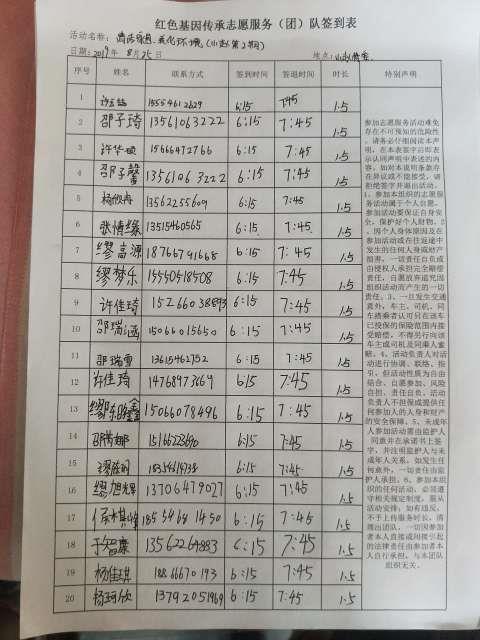 红色基因传承志愿服务（团）队签到表
活动名称：清洁家园,美化环境(小赵第2期)
日期:2019年 8月25日 地点:
序号 姓名 联系方式 签到时间 签退时间 时长 特别声明
1 15554612629 6:15 7:45 1.5
2 邵子琦 13561063222 6:15 7:45 1.5
3 许华顿 15666472766 6:15 7:45 1.5
4 邵子馨 13561063222 6:15 7:45 1.5
5 杨俊冉 13562255609 6:15 7:45 1.5
6 张情缘 13515460565 6:15 7:45 1.5
7 缪高源 18766791668 6:15 7:45 1.5
8 缪梦乐 15550518508 6:15 7:45 1.5
9 许佳琦 15266038893 6:15 7:45 1.5
10 邵瑞涵 15066015650 6:15 7:45 1.5
11 邵瑞雪 13615462752 6:15 7:45 1.5
12 许佳琦 14768973669 6:15 7:45 1.5
13 15066078496 6:15 7:45 1.5
14 6:15 7:45 1.5
15 6:15 7:45 1.5
16 缪旭辉 13706479027 6:15 7:45 1.5
17 18554681450 6:15 7:45 1.5
18 于智康 13562269883 6:15 7:45 1.5
19 杨佳琪 18866670193 6:15 7:45 1.5
20 杨珂欣 13792051969 6:15 7:45 1.5
参加志愿服务活动难免
存在不可预知的危险性
，请务必仔细阅读本声
明，在本表签字后即表
示认同声明中表述的内
容，如对本说明条款存
在异议或不能接受，请
拒绝签字并退出活动。
1、参加本组织的志愿服
务活动属于个人自愿，
参加活动要保证自身安
全，保护好个人财物。2
、因个人身体原因及在
参加活动或在往返途中
发生的任何人身或财产
损害，一切责任自负或
由侵权人承担完全赔偿
责任，自愿放弃追究因
组织活动而产生的一切
责任。3、一旦发生交通
意外，车主、司机、同
车搭乘者认可只在该车
已投保的保险范围内接
受赔偿，不得另行向该
车主或司机及同乘人索
赔。4、活动负责人对活
动进行协调、联络、指
引，但活动性质为自由
结合、自愿参加、风险
自担、责任自负。活动
负责人不担保或提供任
何参加人的人身和财产
的安全保障。5、未成年
人参加活动需由监护人
同意并在承诺书上签
字，并注明监护人与未
成年人关系。如发生任
何意外，一切责任由监
护人承担。6、参加本组
织的任何活动，必须遵
守相关规定制度，服从
活动安排，如有违反，
不予上传服务时长，清
理出团队。一切因参加
者本人直接或间接引起
的法律责任由参加者本
人自行承担，与本团队
组织无关。